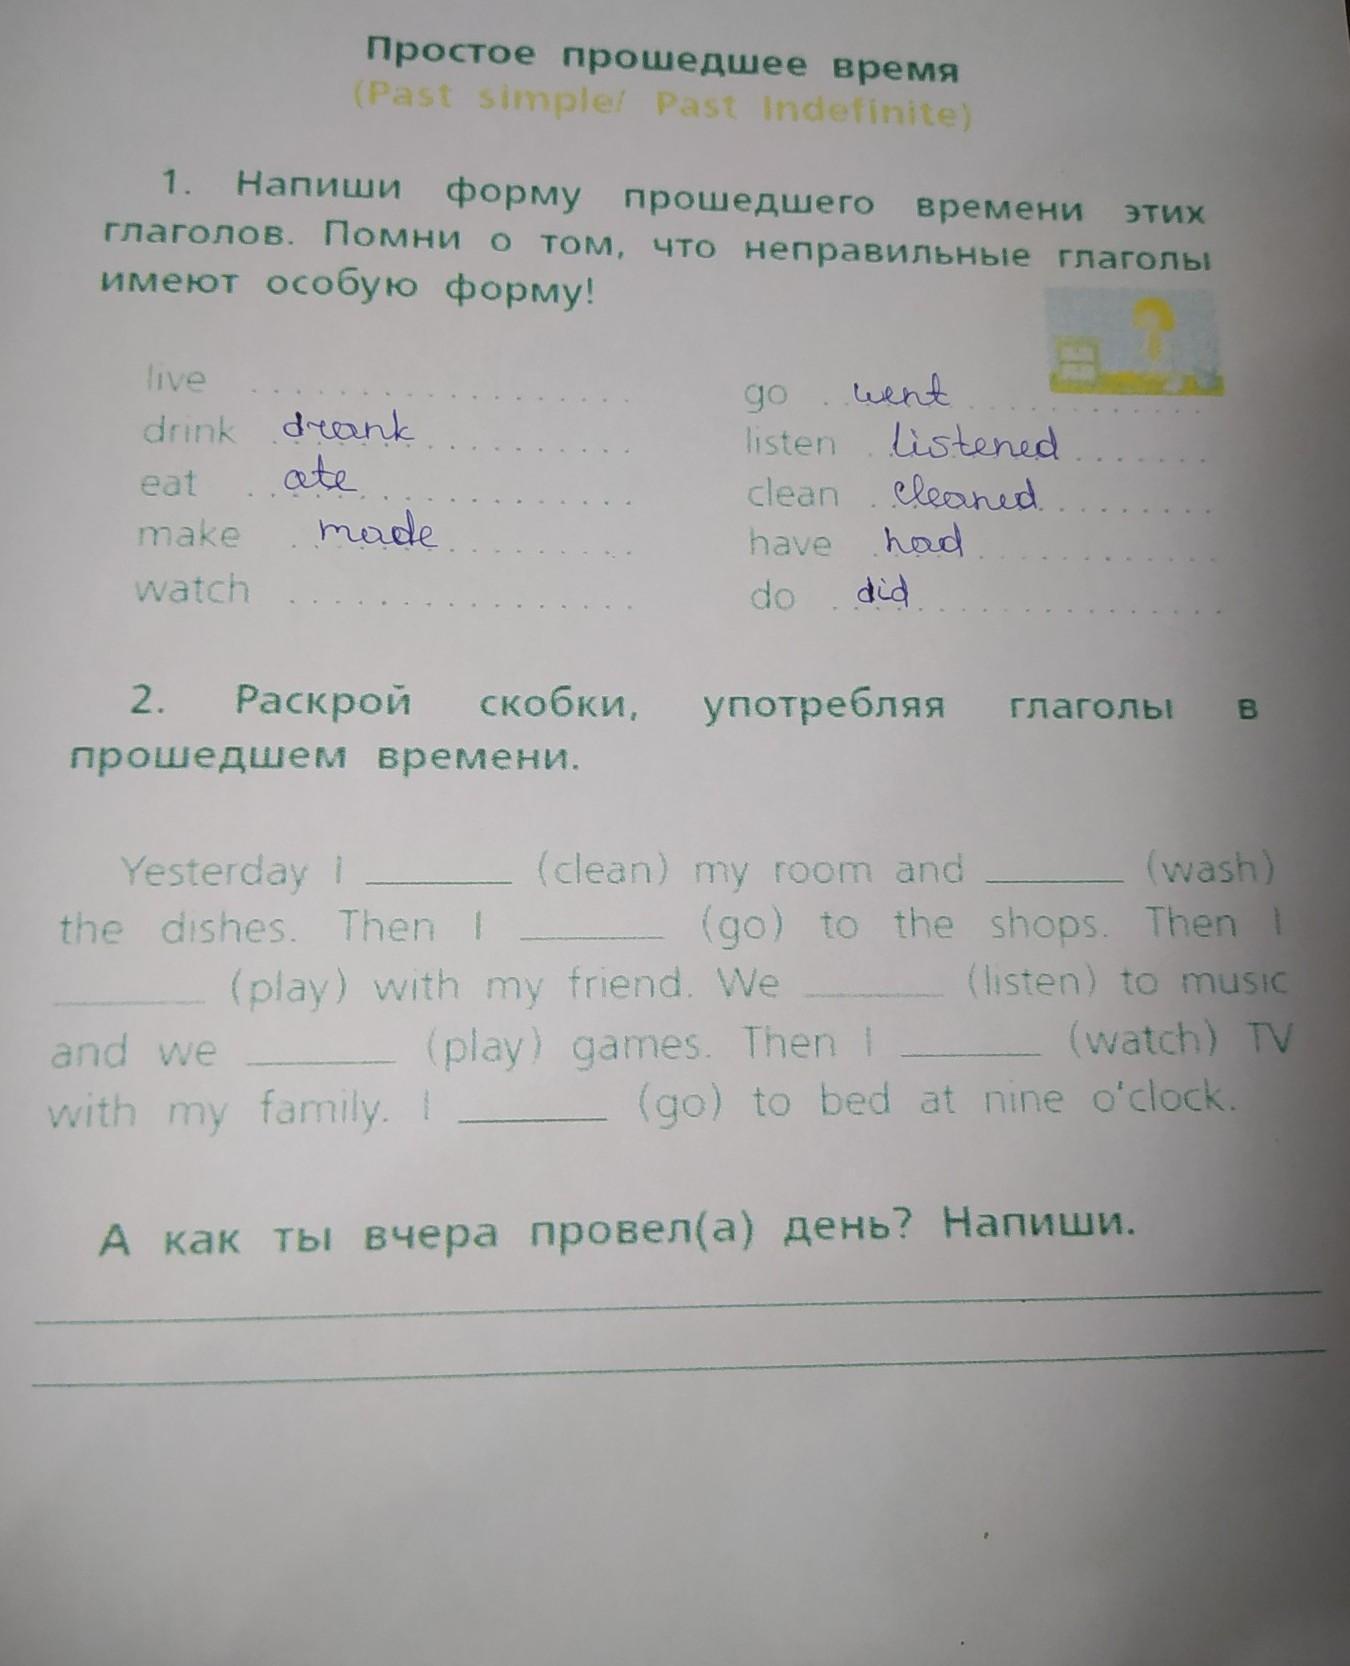 Простое прошедшее время
(Past simple/ Past Indefinite)
1. Напиши форму прошедшего времени этих
глаголов. Помни о том, что неправильные глаголы
имеют особую форму!
live ..................
drink drank
eat ate
make made
watch ..................
go went
listen listened
clean cleaned
have had
do did
2. Раскрой скобки, употребляя глаголы в
прошедшем времени.
Yesterday I ______ (clean) my room and ______ (wash)
the dishes. Then I ______ (go) to the shops. Then I
______ (play) with my friend. We ______ (listen) to music
and we ______ (play) games. Then I ______ (watch) TV
with my family. I ______ (go) to bed at nine o'clock.
А как ты вчера провел(а) день? Напиши.